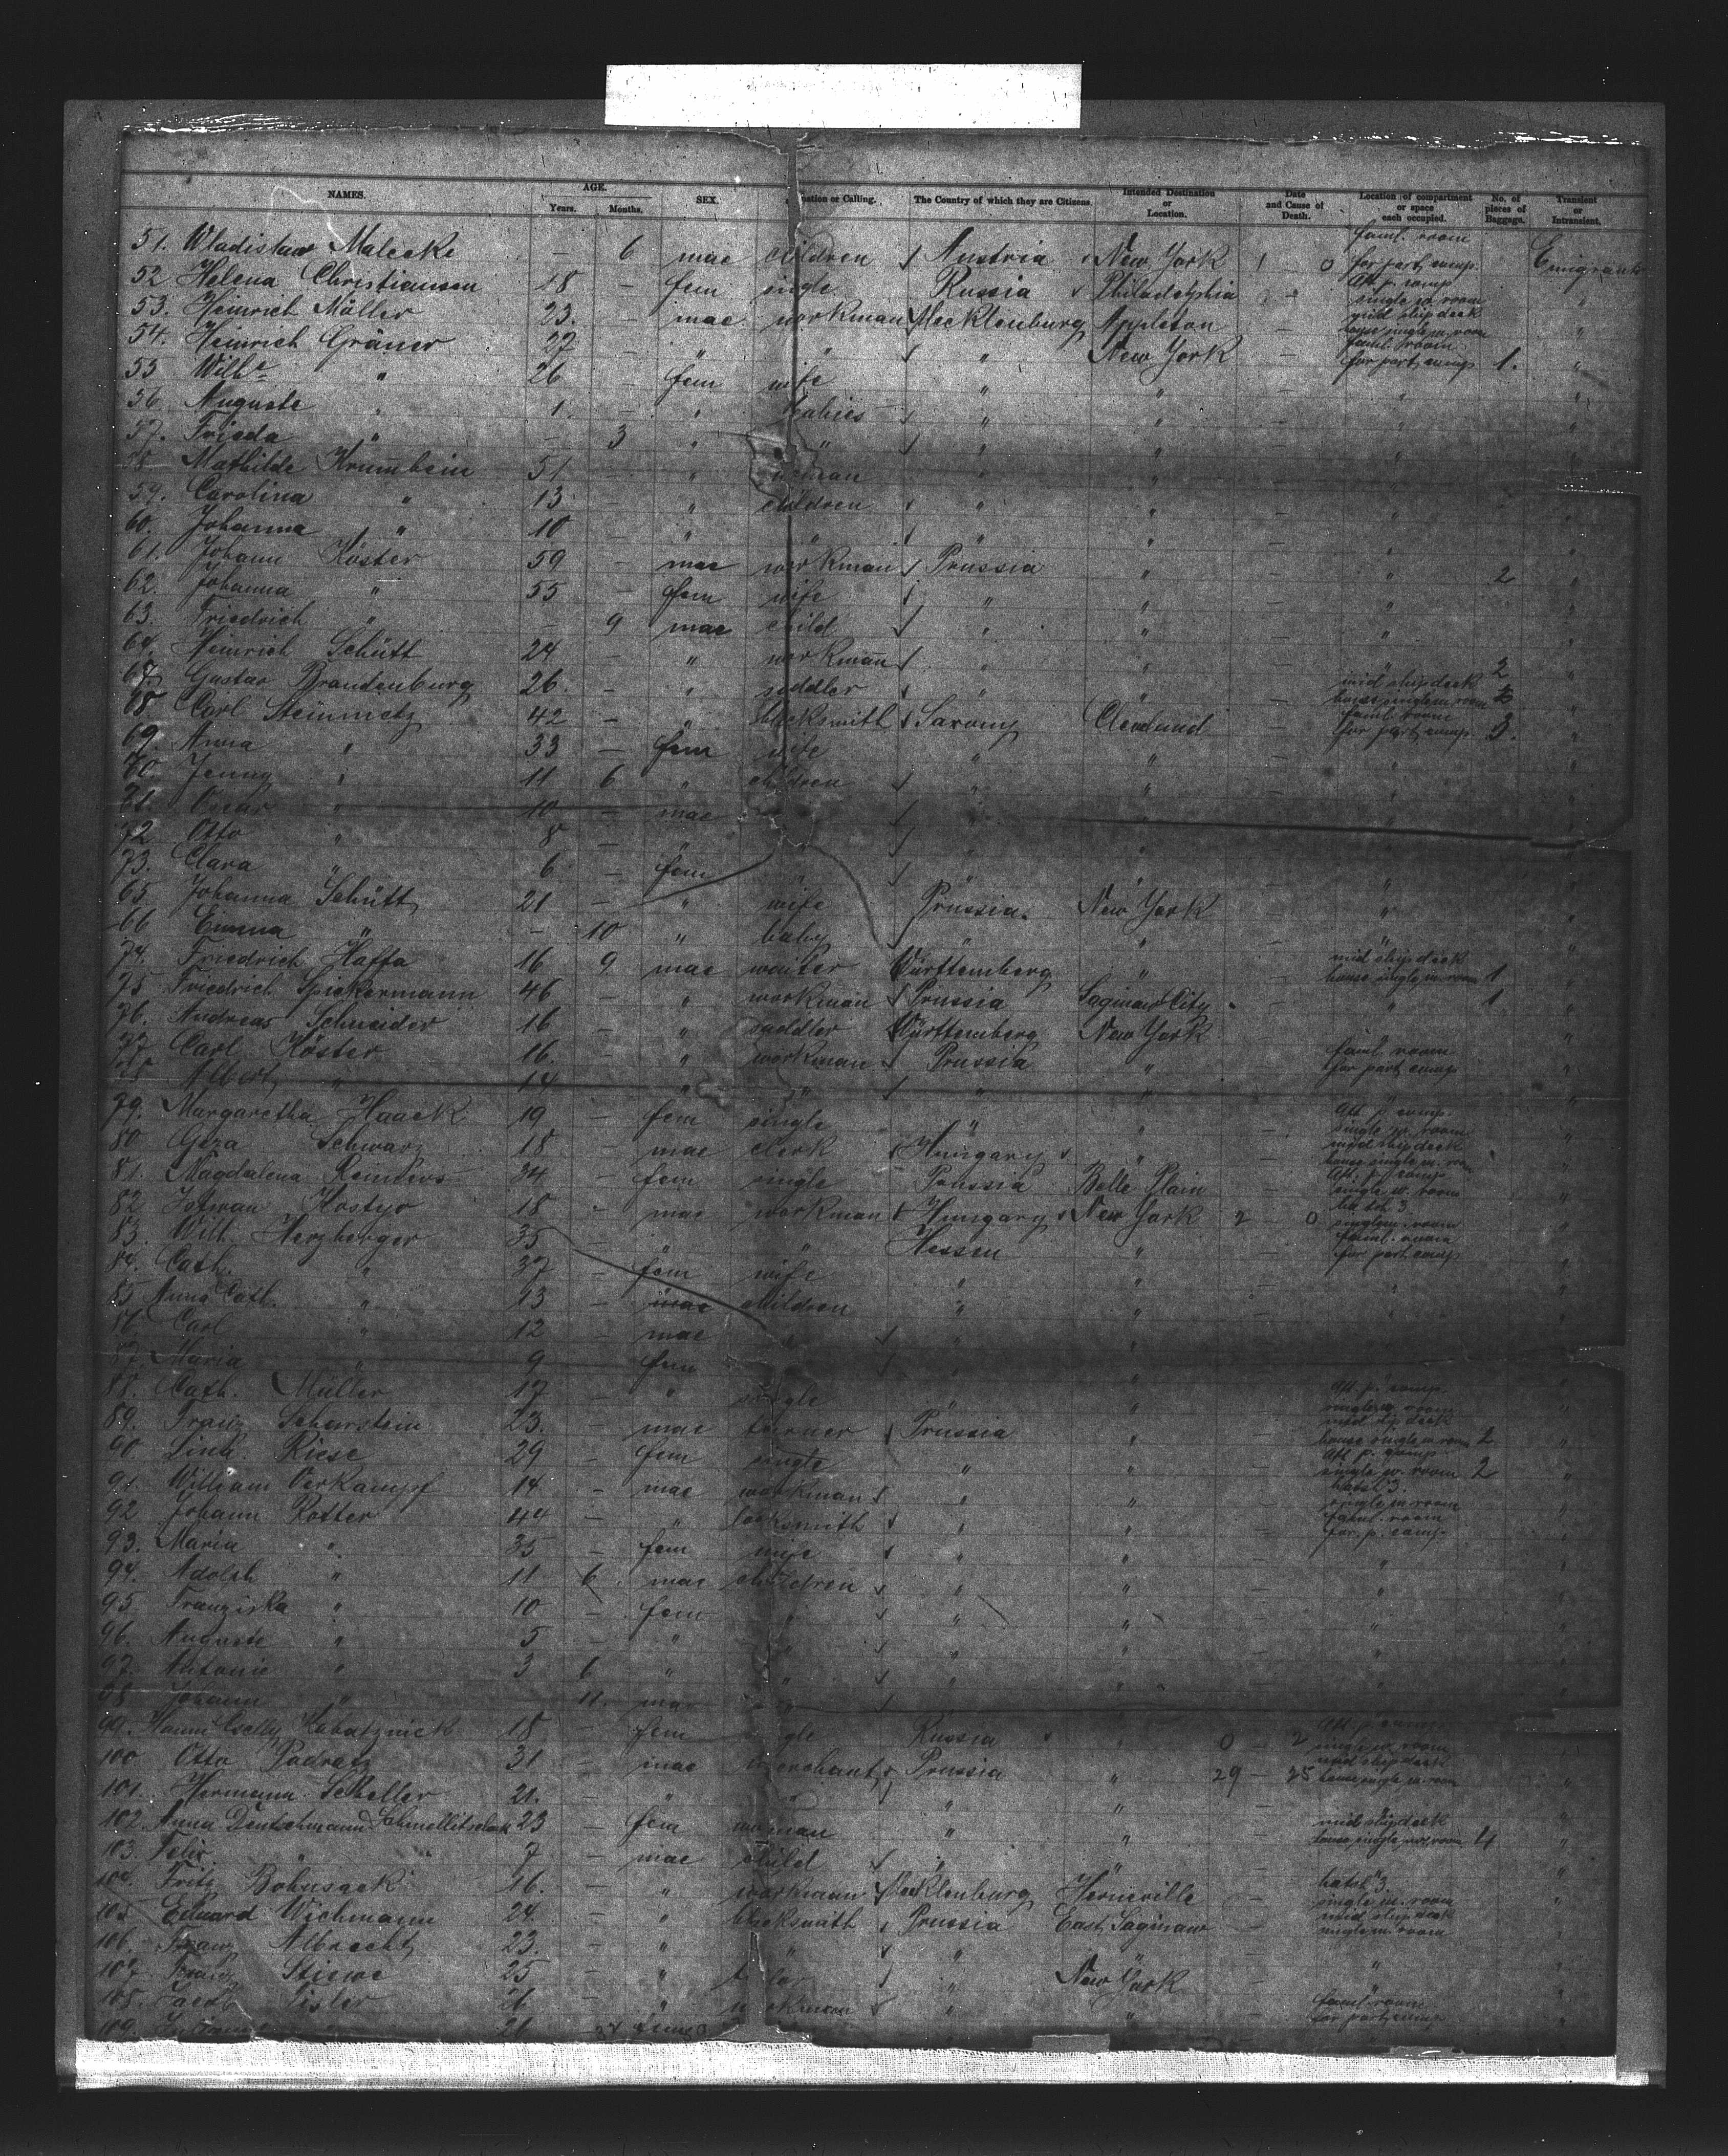 NAMES. AGE. Years. Months. SEX. ation or Calling. The Country of which they are Citizens. Intended Destination or Location. Date and Cause of Death. Location of compartment or space each occupied. No. of pieces of Baggage. Transient or Intransient.
51. Wladislaw Malecke — 6 mae children Austria New York 1 0 faml. room for part camp. Emigrant
52 Helena Christiansen 18 — fem single Russia Philadelphia — Aft. p. camp single w. room "
53. Heinrich Möller 23. — mae workman Mecklenburg Appleton — mid ship deck house single m. room "
54. Heinrich Gräner 27 — " " " New York — faml. room for part camp 1. "
55 Wilhe " 26 — fem wife " " — " "
56 Auguste " 1. — " babies " " — " "
57. Frieda " — 3 " " " " — " "
58 Mathilde Krumbein 51 — " woman " " — " "
59. Carolina " 13 — " children " " — " "
60. Johanna " 10 — " " " " — " "
61. Johann Köster 59 — mae workman Prussia " — " 2 "
62. Johanna " 55 — fem wife " " — " "
63. Friedrich " — 9 mae child " " — " "
64. Heinrich Schütt 24 — " workman " " — " 2 "
67. Gustav Brandenburg 26. — " saddler " " — mid ship deck house single m. room "
68 Carl Steinmetz 42 — " blacksmith Saxony Cleveland — faml. room for part camp 3. "
69. Anna " 33 — fem wife " " — " "
70. Jenny " 11 6 " children " " — " "
71. Oscar " 10 — mae " " " — " "
72 Otto " 8 — " " " " — " "
73. Clara " 6 — fem " " " — " "
65. Johanna Schütt 21 — " wife Prussia. New York — " "
66 Emma " — 10 " baby " " — " "
74. Friedrich Haffa 16 9 mae waiter Württemberg " — mid ship deck house single m. room 1 "
75 Friedrich Spickermann 46 — " workman Prussia Saginaw City — " 1 "
76. Andreas Schneider 16 — " saddler Württemberg New York — "
77 Carl Köster 16. — " workman Prussia " — faml. room for part camp "
78 Albert " 14 — " " " " — "
79. Margaretha Haack 19 — fem single " " — Aft. p. camp. single w. room "
80 Géza Schwarz 18 — mae clerk Hungary " — mid ship deck house single m. room "
81. Magdalena Reinders 34 — fem single Prussia Belle Plain — Aft. p. camp single w. room "
82 Istwan Kostyo 18 — mae workman Hungary New York 2 — 0 hatch 3. single m. room "
83. Wilh. Herzberger 35 — " " Hessen " — faml. room for part camp "
84. Cath. " 37 — fem wife " " — " "
85 Anna Cath. " 13 — mae children " " — " "
86 Carl " 12 — mae " " " — " "
87. Maria " 9 — fem " " " — " "
88. Cath. Müller 17 — " single " " — Aft. p. camp. single w. room "
89. Franz Scharstein 23. — mae turner Prussia " — mid ship deck house single m. room 2 "
90 Lina Riese 29 — fem single " " — Aft. p. camp single w. room 2 "
91. William Verkampf 14 — mae workman " " — hatch 3. single m. room "
92 Johann Rotter 44 — " locksmith " " — faml. room for. p. camp "
93. Maria " 35 — fem wife " " — " "
94. Adolph " 11 6 mae children " " — " "
95 Franziska " 10 — fem " " " — " "
96. Auguste " 5 — " " " " — " "
97. Antonie " 3 6 " " " " — " "
98 Johann " 11. mae " " " — " "
99. Hanni Kabatznick 18 — fem single Russia " 0 — 2 Aft. p. camp single w. room "
100 Otto Padratz 31 — mae merchant Prussia " 29 — 25 mid ship deck house single m. room "
101. Hermann Scheller 21. — " " " " "
102 Anna Deutschmann 23 — fem woman " " mid ship deck house single m. room 4 "
103. Felix " 7 — mae child " " "
104. Fritz Bohnsack 16. — " workman Mecklenburg Herneville — hatch 3. single m. room "
105 Eduard Wichmann 24. — " blacksmith Prussia East Saginaw — mid ship deck single m. room
106. Franz Albrecht 23. — " " " " — " "
107 Franz Stiewe 25 — " " New York — " "
108. Jacob 21 — " workman " " — faml. room for part camp "
109. 21